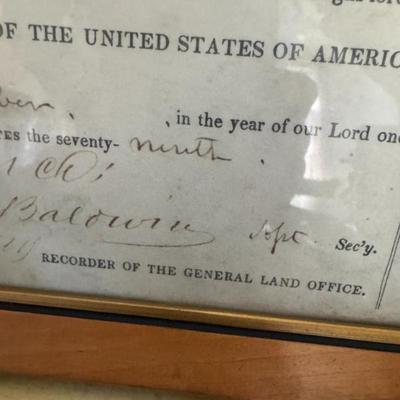 OF THE UNITED STATES OF AMERICA
ber, , in the year of our Lord one
TES the seventy-ninth.
Baldwin Sec'y.
RECORDER OF THE GENERAL LAND OFFICE.